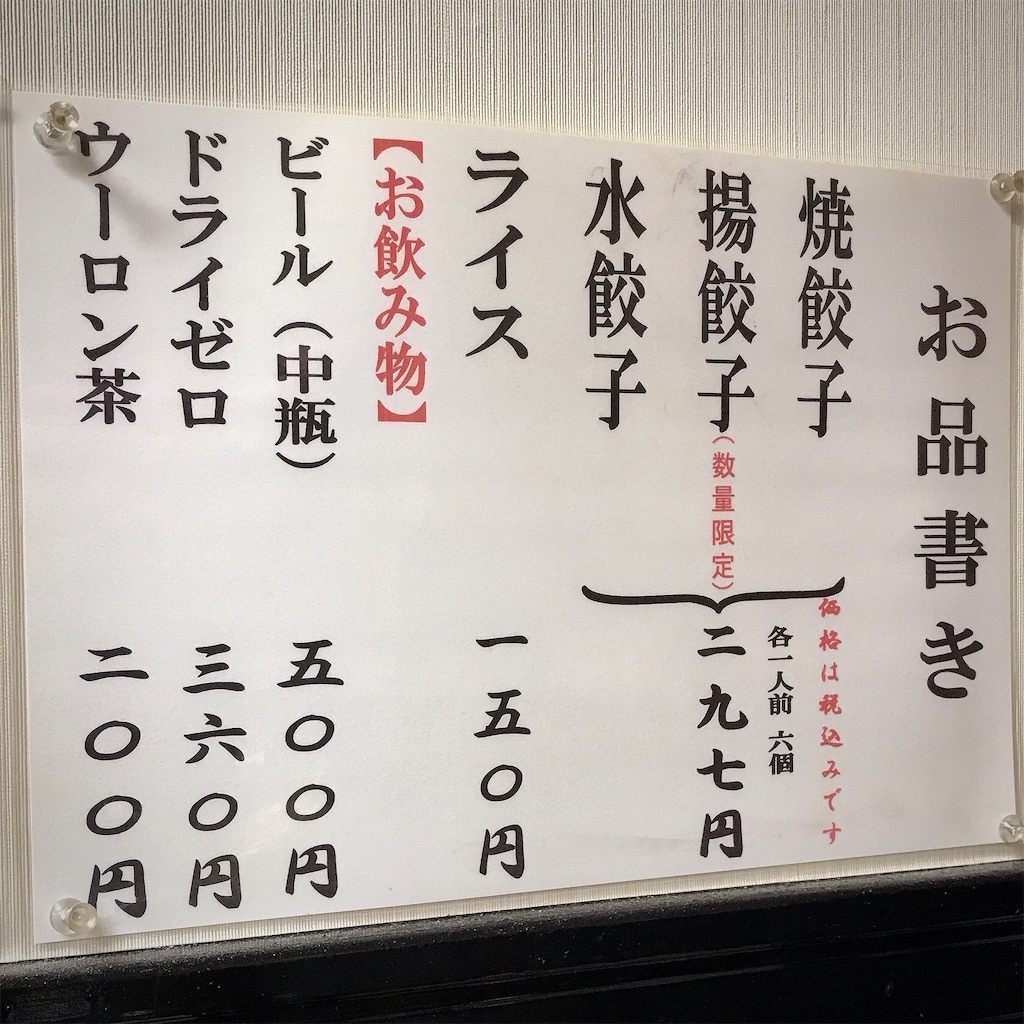 お品書き
焼餃子
揚餃子(数量限定)
水餃子
価格は税込みです
各一人前 六個
二九七円
ライス 一五〇円
【お飲み物】
ビール(中瓶) 五〇〇円
ドライゼロ 三六〇円
ウーロン茶 二〇〇円